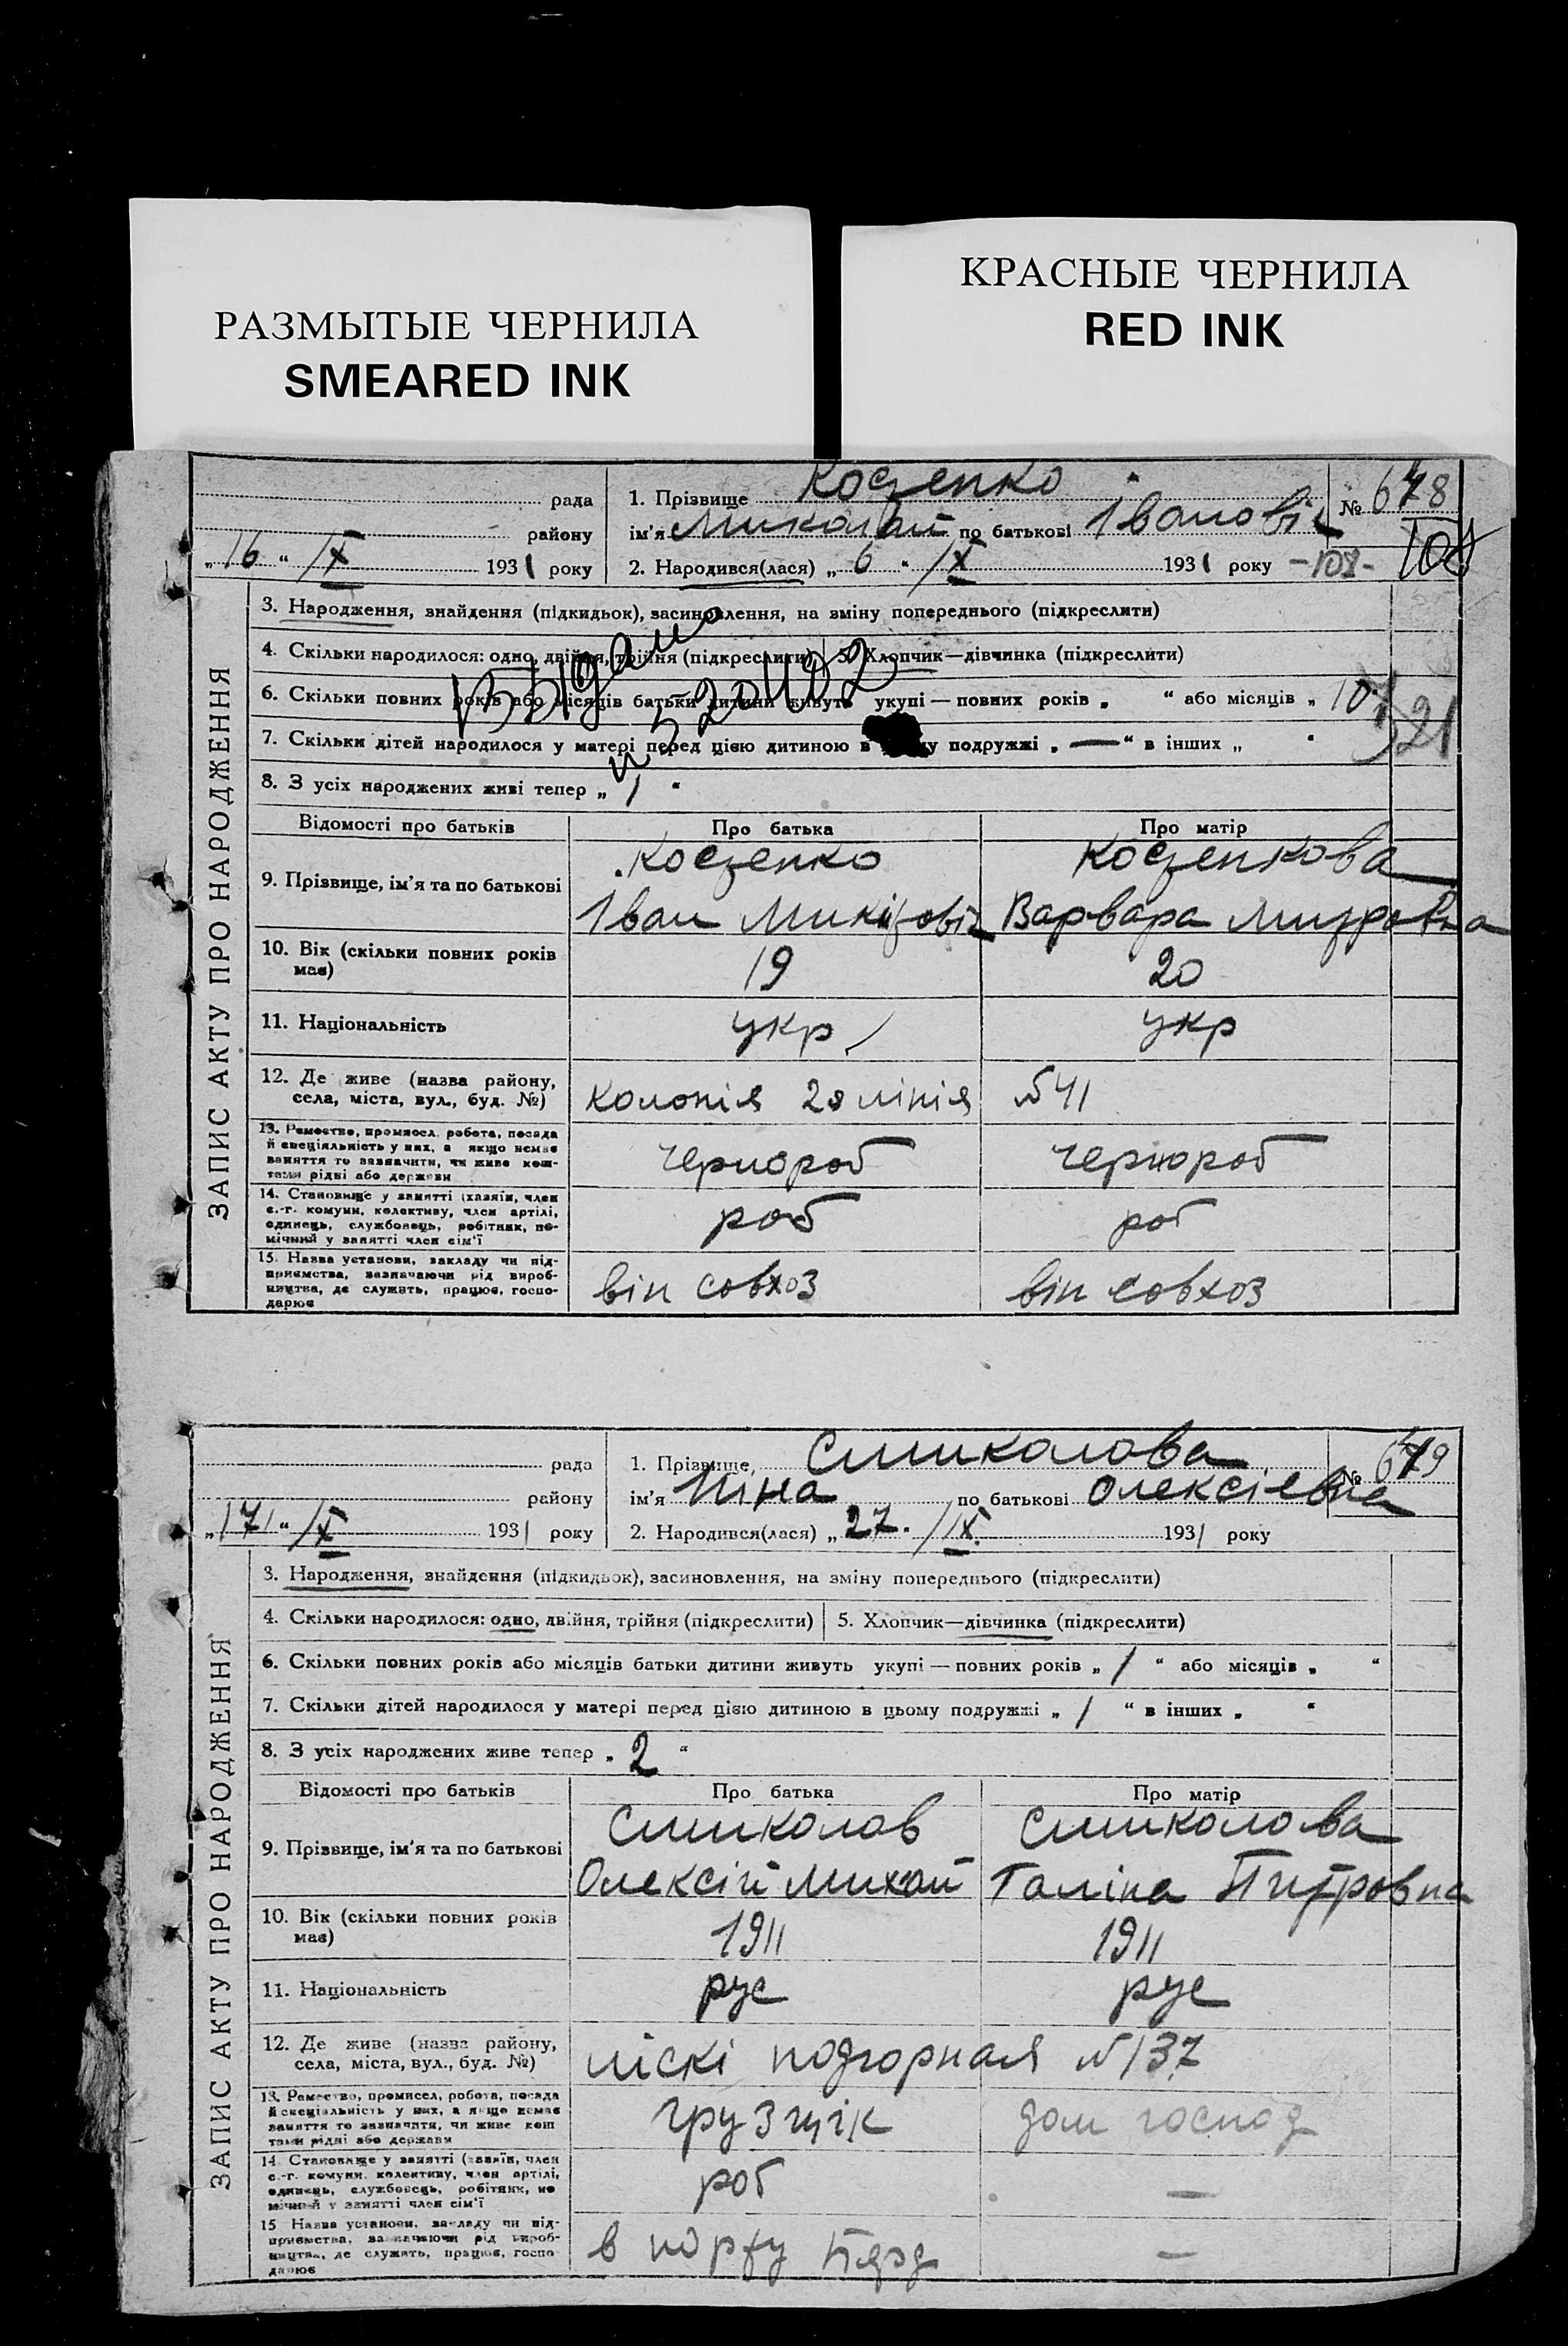 РАЗМЫТЫЕ ЧЕРНИЛА
SMEARED INK
КРАСНЫЕ ЧЕРНИЛА
RED INK
ЗАПИС АКТУ ПРО НАРОДЖЕННЯ
рада
1. Прізвище
№ 678
району
ім'я Миколай по батькові Івановіч
„ 16 “ IX 1931 року
2. Народився(лася) „ 6 “ IX 1931 року -108- 108
3. Народження, знайдення (підкидьок), засиновлення, на зміну попереднього (підкреслити)
4. Скільки народилося: одно, двійня, трійня (підкреслити)
5. Хлопчик—дівчинка (підкреслити)
6. Скільки повних років або місяців батьки дитини живуть укупі — повних років „ “ або місяців „ 10
7. Скільки дітей народилося у матері перед цією дитиною в цьому подружжі „ — “ в інших „ “
8. З усіх народжених живі тепер „ 1 “
Відомості про батьків
Про батька
Про матір
9. Прізвище, ім'я та по батькові
Іван
Варвара
10. Вік (скільки повних років має)
19
20
11. Національність
укр
укр
12. Де живе (назва району, села, міста, вул., буд. №)
колонія 20 лінія №41
13. Ремество, промисел, робота, посада й спеціяльність у них, а якщо немає заняття то зазначити, чи живе коштами рідні або держави
чернороб
чернороб
14. Становище у занятті (хазяїн, член с.-г. комуни, колективу, член артілі, одинець, службовець, робітник, помічний у занятті член сім'ї
роб
роб
15. Назва установи, закладу чи підприємства, зазначаючи рід виробництва, де служить, працює, господарює
він совхоз
він совхоз
ЗАПИС АКТУ ПРО НАРОДЖЕННЯ
рада
1. Прізвище
№ 679
району
ім'я Ніна по батькові Олексіевна
„ 17 “ IX 1931 року
2. Народився(лася) „ 27 “ IX 1931 року
3. Народження, знайдення (підкидьок), засиновлення, на зміну попереднього (підкреслити)
4. Скільки народилося: одно, двійня, трійня (підкреслити)
5. Хлопчик—дівчинка (підкреслити)
6. Скільки повних років або місяців батьки дитини живуть укупі — повних років „ 1 “ або місяців „ “
7. Скільки дітей народилося у матері перед цією дитиною в цьому подружжі „ 1 “ в інших „ “
8. З усіх народжених живе тепер „ 2 “
Відомості про батьків
Про батька
Про матір
9. Прізвище, ім'я та по батькові
Олексій Михай
Галіна Питровна
10. Вік (скільки повних років має)
1911
1911
11. Національність
рус
рус
12. Де живе (назва району, села, міста, вул., буд. №)
піскі подгорная №137
13. Ремество, промисел, робота, посада й спеціяльність у них, а якщо немає заняття то зазначити, чи живе коштами рідні або держави
грузчік
дом господ
14. Становище у занятті (хазяїн, член с.-г. комуни, колективу, член артілі, одинець, службовець, робітник, помічний у занятті член сім'ї
роб
—
15. Назва установи, закладу чи підприємства, зазначаючи рід виробництва, де служить, працює, господарює
в порту
—